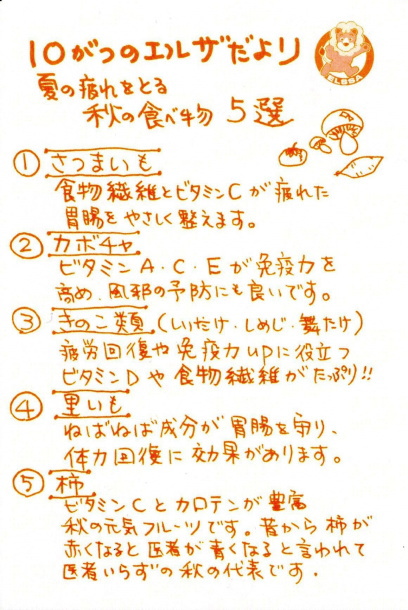 10がつのエルザだより
夏の疲れをとる
秋の食べ物 5選
① さつまいも
食物繊維とビタミンCが疲れた
胃腸をやさしく整えます。
② カボチャ
ビタミンA・C・Eが免疫力を
高め、風邪の予防にも良いです。
③ きのこ類(しいたけ・しめじ・舞たけ)
疲労回復や免疫力upに役立つ
ビタミンDや食物繊維がたっぷり!!
④ 里いも
ねばねば成分が胃腸を守り、
体力回復に効果があります。
⑤ 柿
ビタミンCとカロテンが豊富
秋の元気フルーツです。昔から柿が
赤くなると医者が青くなると言われて
医者いらずの秋の代表です.